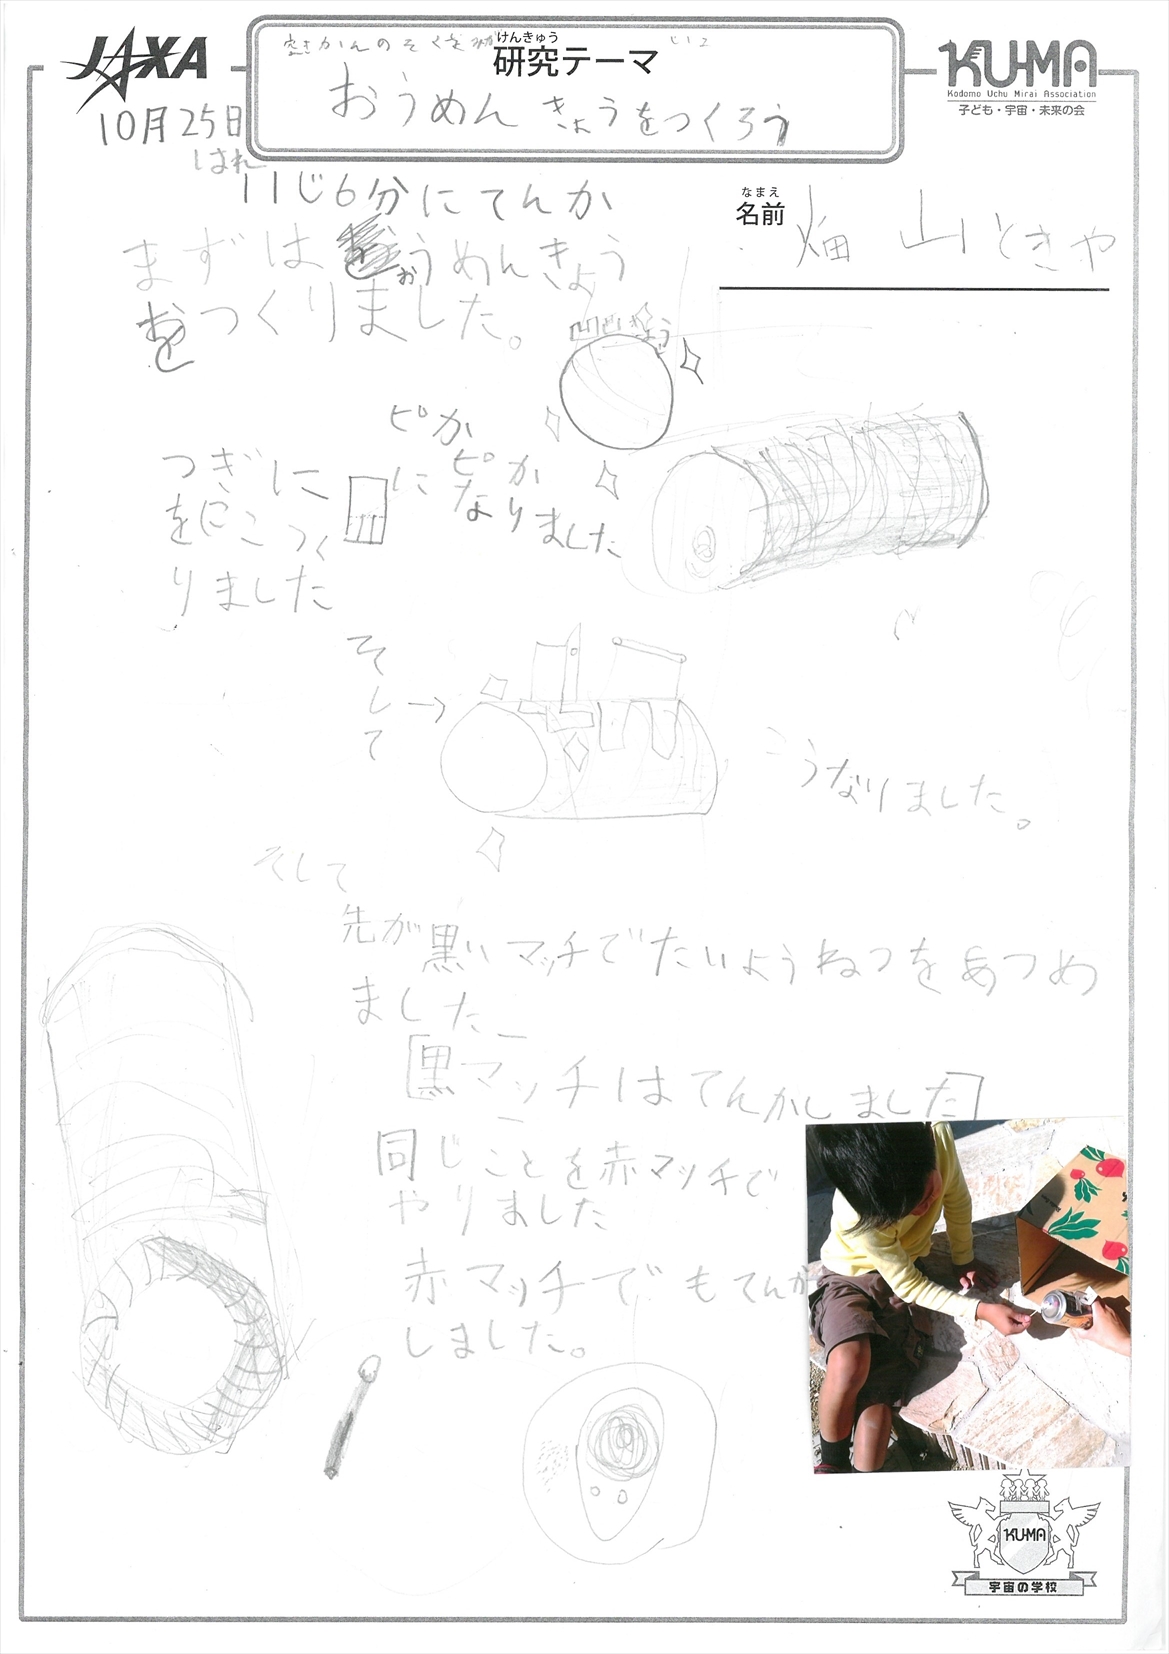 JAXA
けんきゅう
研究テーマ
空きかんのそこをみがいて
おうめんきょうをつくろう
KU-MA
Kodomo Uchu Mirai Association
子ども・宇宙・未来の会
10月25日
はれ
11じ6分にてんか
なまえ
名前
畑山ときや
まずはおうめんきょう
をつくりました。
凹凹きょう
ピカ
ピカ
に
なりました
つぎに
をにこつく
りました
そして→
こうなりました。
そして
先が黒いマッチでたいようねつをあつめ
ました
「黒マッチはてんかしました」
同じことを赤マッチで
やりました
赤マッチでもてんか
しました。
KU-MA
宇宙の学校